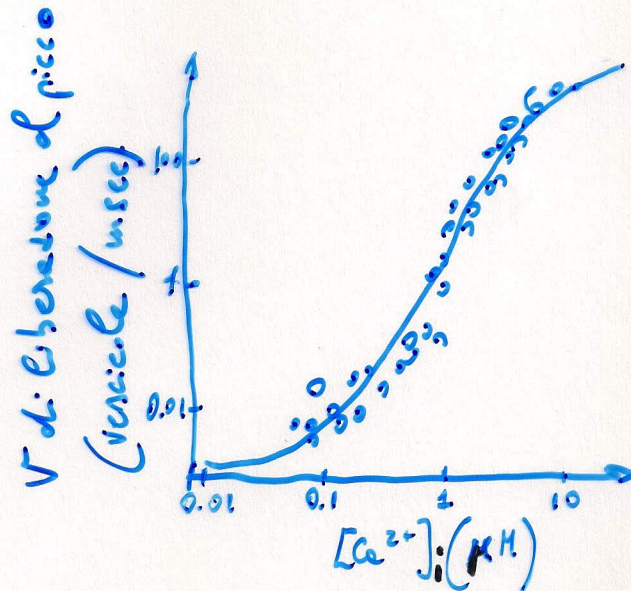 V di liberazione di picco
(vescicole / msec)
100
1
0.01
0.01 0.1 1 10
[Ca²⁺]i (μM)